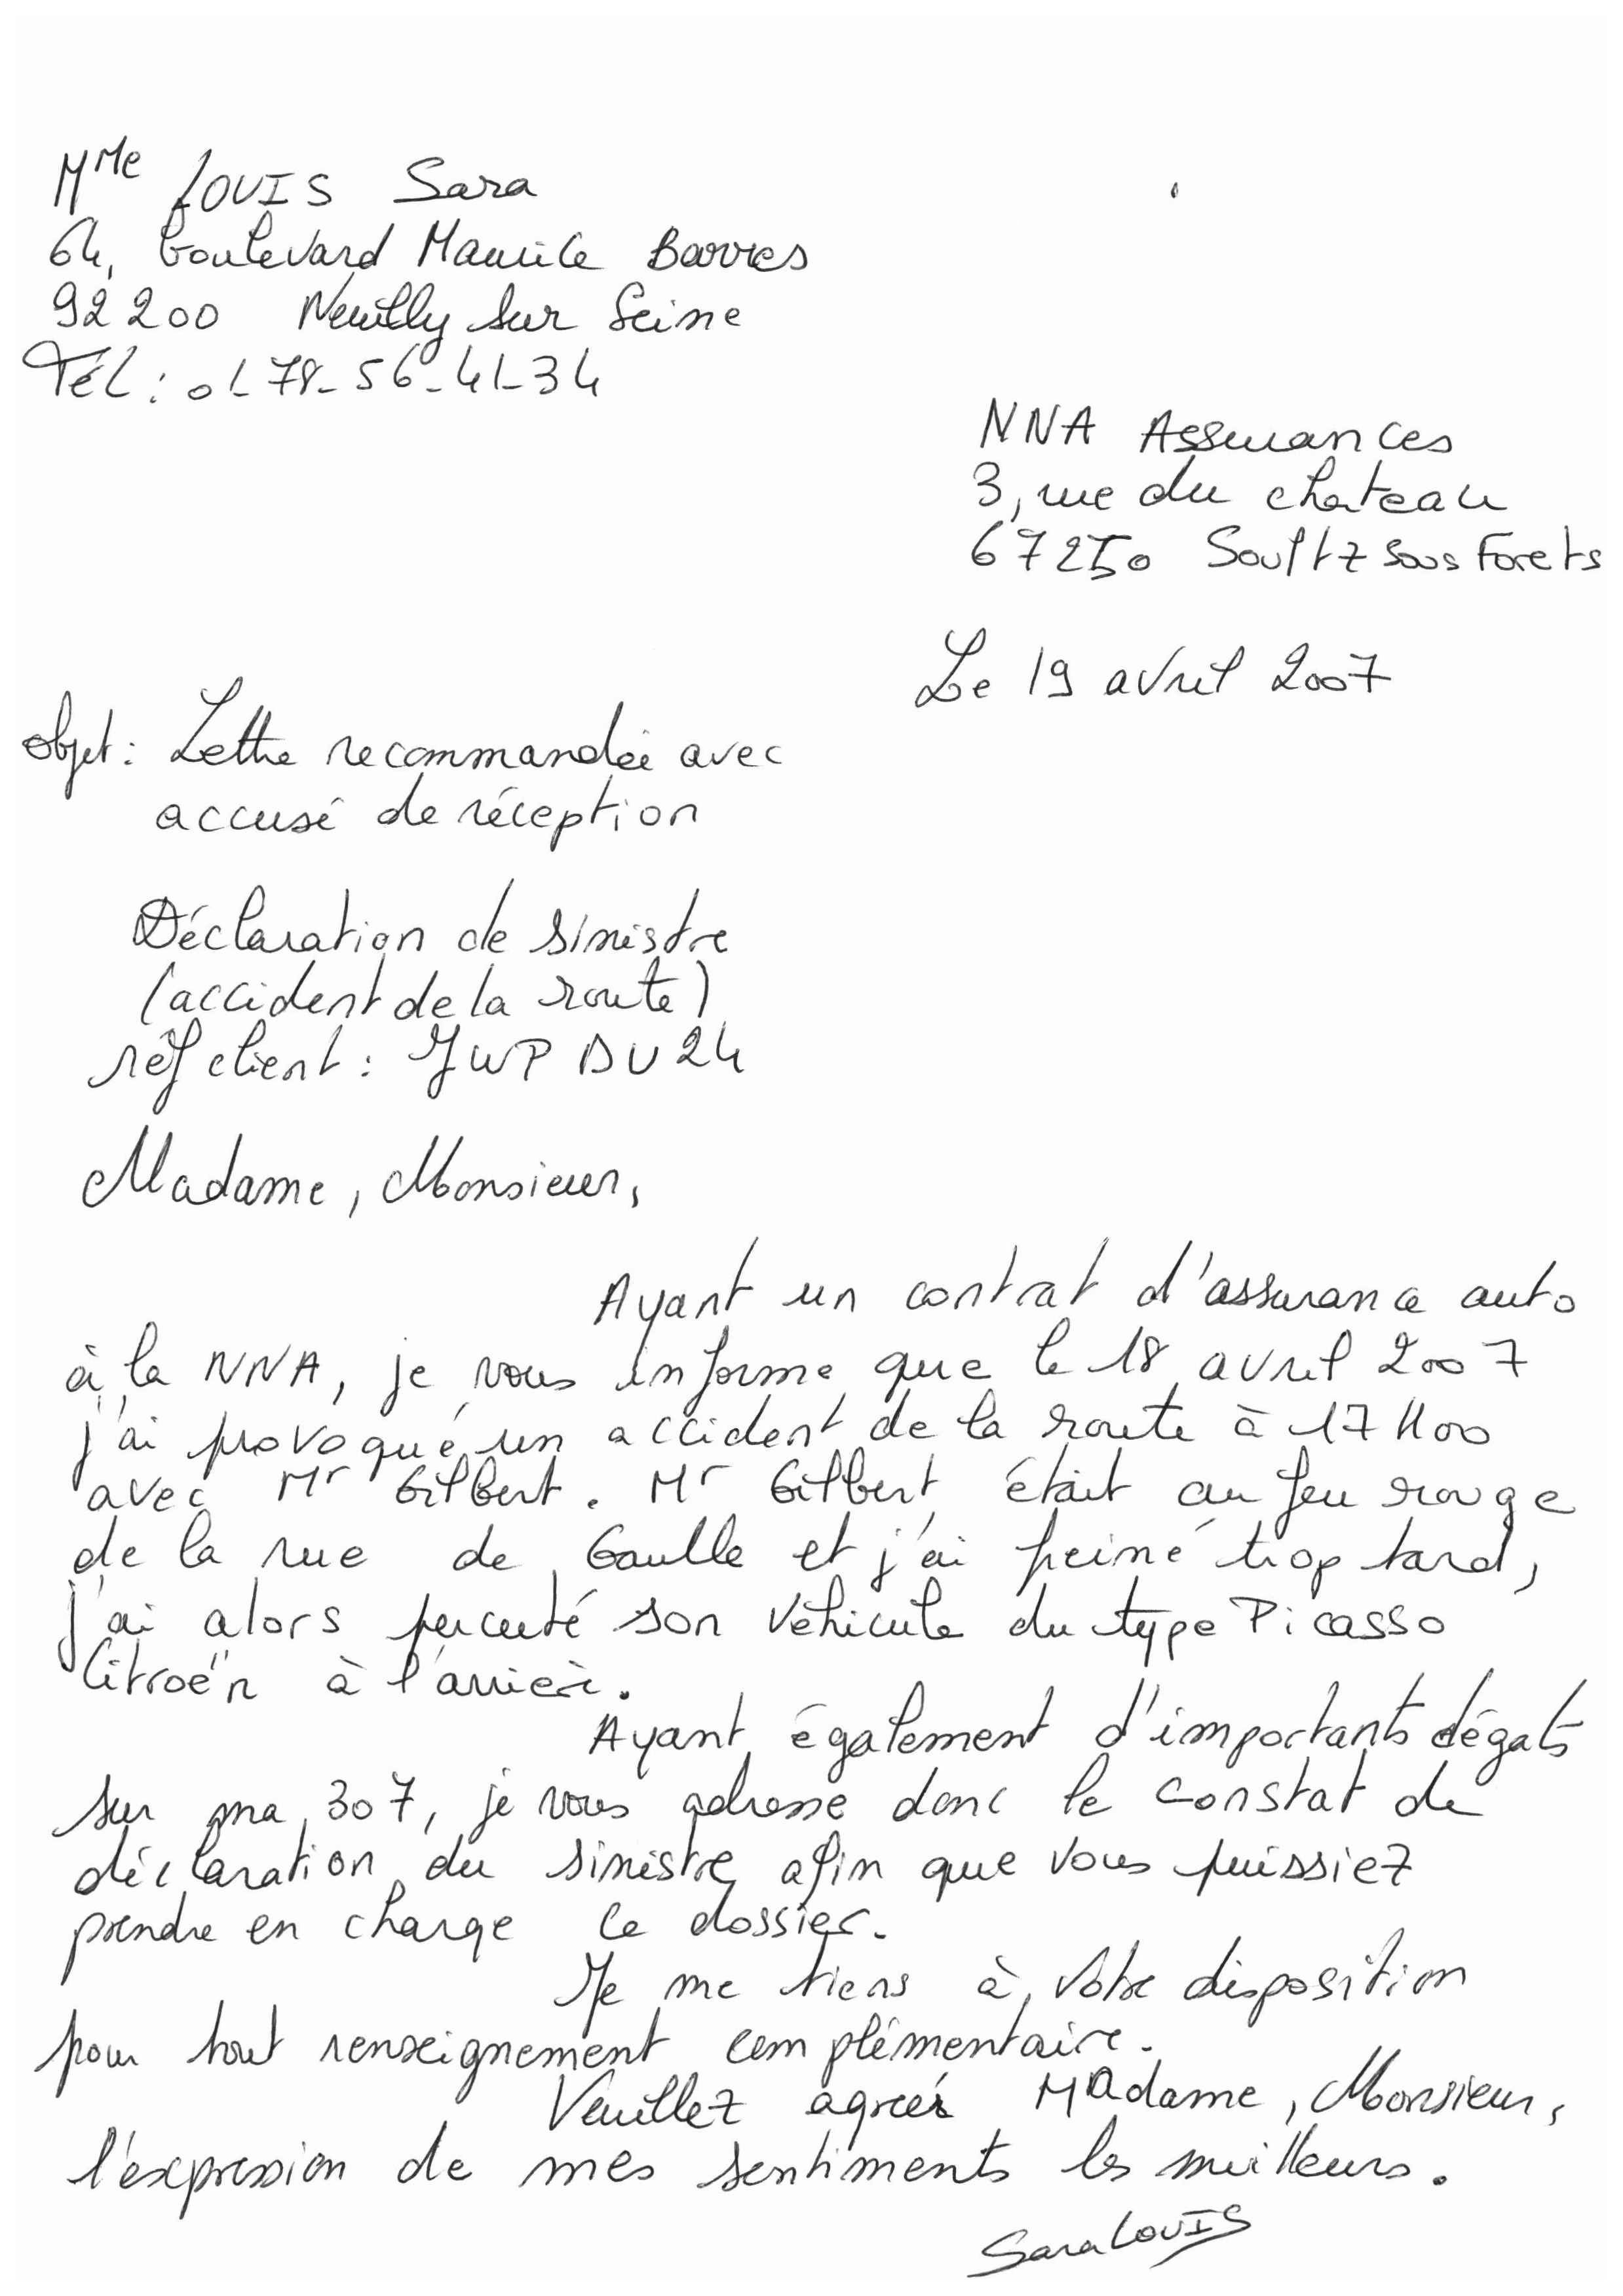 Mme LOUIS Sara
64, boulevard Maurice Barres
92200 Neuilly sur Seine
Tél : 01-78-56-41-34
NNA Assurances
3, rue du chateau
67250 Soultz sous Forets
Le 19 avril 2007
objet : Lettre recommandée avec
accusé de réception
Déclaration de sinistre
(accident de la route)
réf client : JWPDV24
Madame, Monsieur,
Ayant un contrat d'assurance auto
à la NNA, je vous informe que le 18 avril 2007
j'ai provoqué un accident de la route à 17H00
avec Mr Gilbert. Mr Gilbert était au feu rouge
de la rue de Gaulle et j'ai freiné trop tard,
j'ai alors percuté son véhicule du type Picasso
Citroën à l'arrière.
Ayant également d'importants dégats
sur ma 307, je vous adresse donc le constat de
déclaration du sinistre afin que vous puissiez
prendre en charge ce dossier.
Je me tiens à votre disposition
pour tout renseignement complémentaire.
Veuillez agréer Madame, Monsieur,
l'expression de mes sentiments les meilleurs.
Sara LOUIS